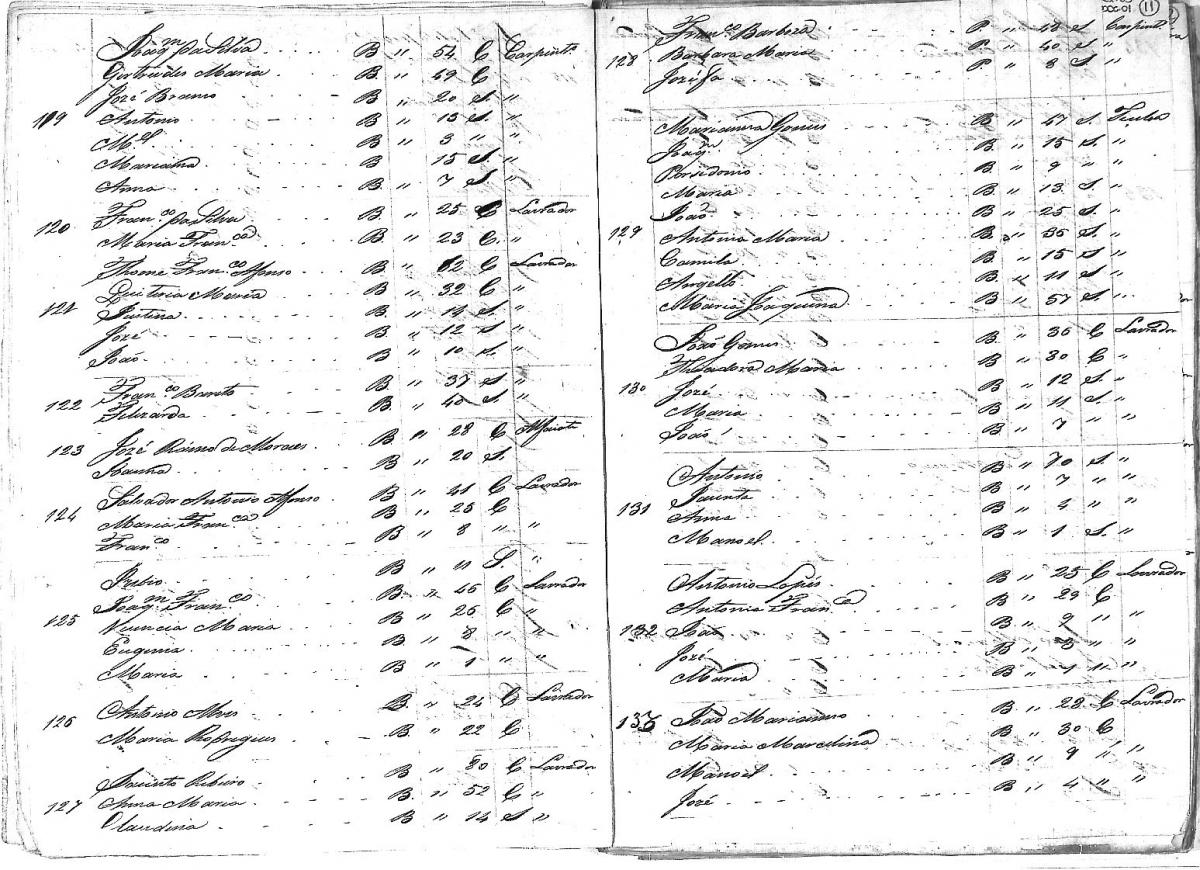 Joaqm da Silva B " 54 C Carpintº
Gertrudes Maria B " 49 C
José Bramo B " 20 S. "
119 Antonio B " 15 S. "
Mel B " 3 " "
Marianna B " 15 S. "
Anna B " 7 S "
Franco da Silva B " 25 C Lavrador
120 Maria Franca B " 23 C. "
Thome Franco Affonso B " 62 C Lavrador
Quiteria Maria B " 32 C "
121 B " 14 S "
José B " 12 S "
João B " 10 S. "
Franco Bento B " 37 S "
122 Felizarda B " 40 S "
José Ramo de Moraes B " 28 C Alfaiate
123 Joanna B " 20 S
Salvador Antonio Affonso B " 41 C Lavrador
124 Maria Franca B " 25 C
Franco B " 8 " "
Rubio B " 11 S. "
Joaqm Franco B " 46 C Lavrador
125 Nuncia Maria B " 26 C "
Eugenia B " 8 " "
Maria B " 1 " "
126 Antonio Alves B " 24 C Lavrador
Maria Rodrigues B " 22 C
Jacinto Ribeiro B " 80 C Lavrador
127 Anna Maria B " 52 C "
Claudina B " 14 S "
11
Franco Barboza P " 48 S Carpintº
128 Barbara Maria P " 40 S "
Jozefa P " 8 S "
Marianna Gomes B " 47 S.
Joaqm B " 15 S. "
Possidonio B " 9 " "
Maria B " 13 S. "
João B " 25 S. "
129 Antonia Maria B " 36 S "
Camila B " 15 S "
Angelo B " 11 S "
Maria Joaquina B " 57 S "
João Gomes B " 36 C Lavrador
Theadora Maria B " 30 C "
130 José B " 12 S. "
Maria B " 11 S. "
João B " 7 " "
Antonio B " 70 S. "
Jacinta B " 7 " "
131 Anna B " 4 " "
Manoel B " 1 S. "
Antonio Lopes B " 25 C Lavrador
Antonia Franca B " 29 C
132 João B " 9 " "
José B " 3 " "
Maria B " 1 " "
133 João Marianno B " 28 C Lavrador
Maria Marcelina B " 30 C
Manoel B " 9 " "
José B " 4 " "